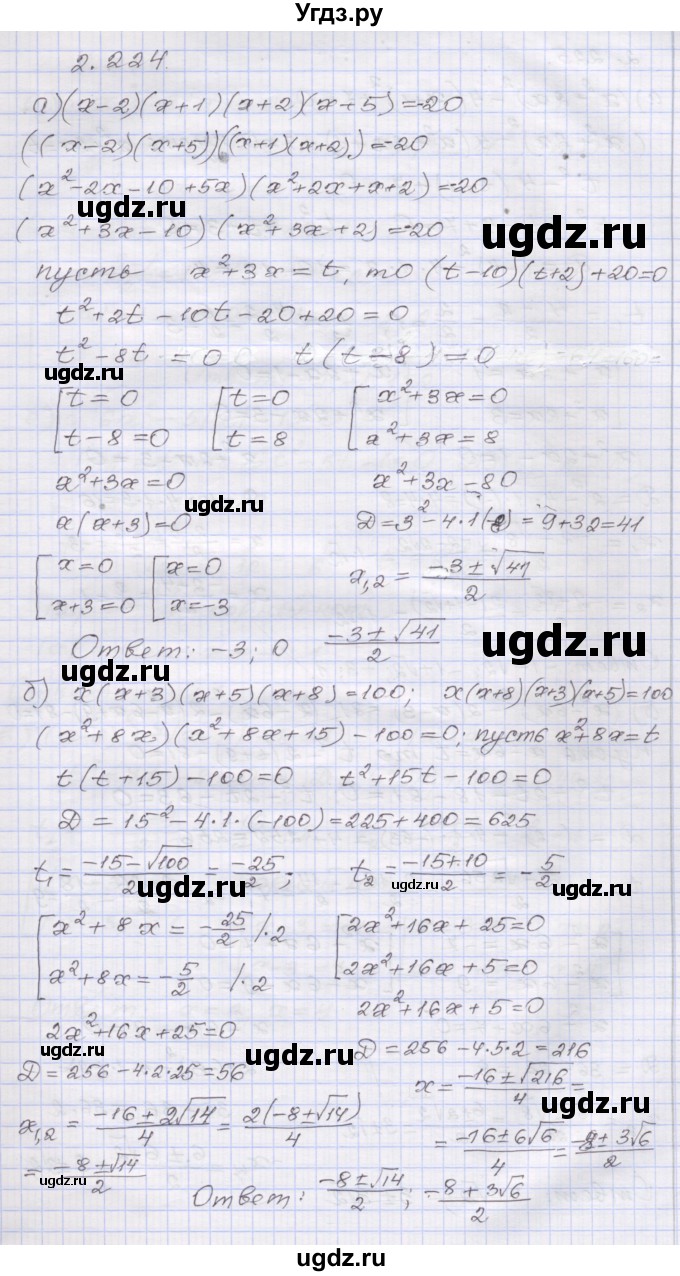 Угдз.ру
2.224.
а) (x-2)(x+1)(x+2)(x+5)=-20
((x-2)(x+5))((x+1)(x+2))=-20
(x²-2x-10+5x)(x²+2x+x+2)=-20
(x²+3x-10)(x²+3x+2)=-20
ugdz.ru
пусть x²+3x=t, то (t-10)(t+2)+20=0
t²+2t-10t-20+20=0
t²-8t=0 t(t-8)=0
ugdz.ru
[t=0 [t=0 [x²+3x=0
t-8=0 t=8 x²+3x=8
x²+3x=0 x²+3x-80
ugdz.ru
x(x+3)=0 D=3²-4·1(-8)=9+32=41
[x=0 [x=0 x₁,₂ = (-3±√41)/2
x+3=0 x=-3
ugdz.ru
Ответ: -3; 0 (-3±√41)/2
ugdz.ru
б) x(x+3)(x+5)(x+8)=100; x(x+8)(x+3)(x+5)=100
(x²+8x)(x²+8x+15)-100=0; пусть x²+8x=t
t(t+15)-100=0 t²+15t-100=0
D=15²-4·1·(-100)=225+400=625
t₁=(-15-√100)/2=-25/2; t₂=(-15+10)/2=-5/2
ugdz.ru ugdz.ru ugdz.ru
[x²+8x=-25/2 /·2 [2x²+16x+25=0
x²+8x=-5/2 /·2 2x²+16x+5=0
ugdz.ru
2x²+16x+5=0
2x²+16x+25=0
ugdz.ru
D=256-4·5·2=216
D=256-4·2·25=56
x=(-16±√216)/4=
ugdz.ru
x₁,₂=(-16±2√14)/4=2(-8±√14)/4
=(-16±6√6)/4=(-8±3√6)/2
=(-8±√14)/2
ugdz.ru
Ответ: (-8±√14)/2; (-8+3√6)/2
ugdz.ru
ugdz.ru